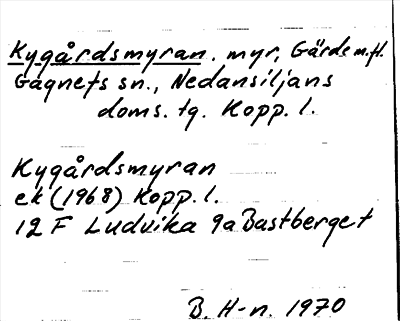 Kygårdsmyran. myr, Gärde m.fl.
Gagnefs sn., Nedansiljans
doms. tg. Kopp. l.
Kygårdsmyran
ek (1968) Kopp. l.
12 F Ludvika 9a Bastberget
B. H-n. 1970